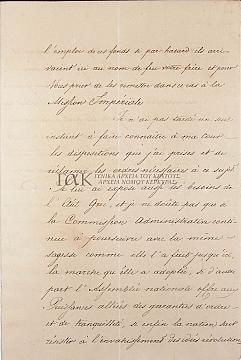 l'emploi de ces fonds si par hasard ils arri-
vaient ici au nom de feu votre frère et pour
vous prier de les remettre dans ce cas à la
Mission Impériale
Je n'ai pas tardé un seul
instant à faire connaître à ma cour
les dispositions que j'ai prises et de
réclamer les ordres nécessaires à ce sujet.
ΓΕΝΙΚΑ ΑΡΧΕΙΑ ΤΟΥ ΚΡΑΤΟΥΣ
ΑΡΧΕΙΑ ΝΟΜΟΥ ΚΕΡΚΥΡΑΣ
Je lui ai exposé aussi les besoins de
l'État Grec, et je ne doute pas que si
la Commission Administrative conti-
nue à poursuivre avec la même
sagesse comme elle l'a fait jusqu'ici
la marche qu'elle a adoptée, si d'autre
part l'Assemblée nationale offre aux
Puissances alliées des garanties d'ordre
et de tranquillité, si enfin la nation sait
résister à l'envahissement des idées révolution